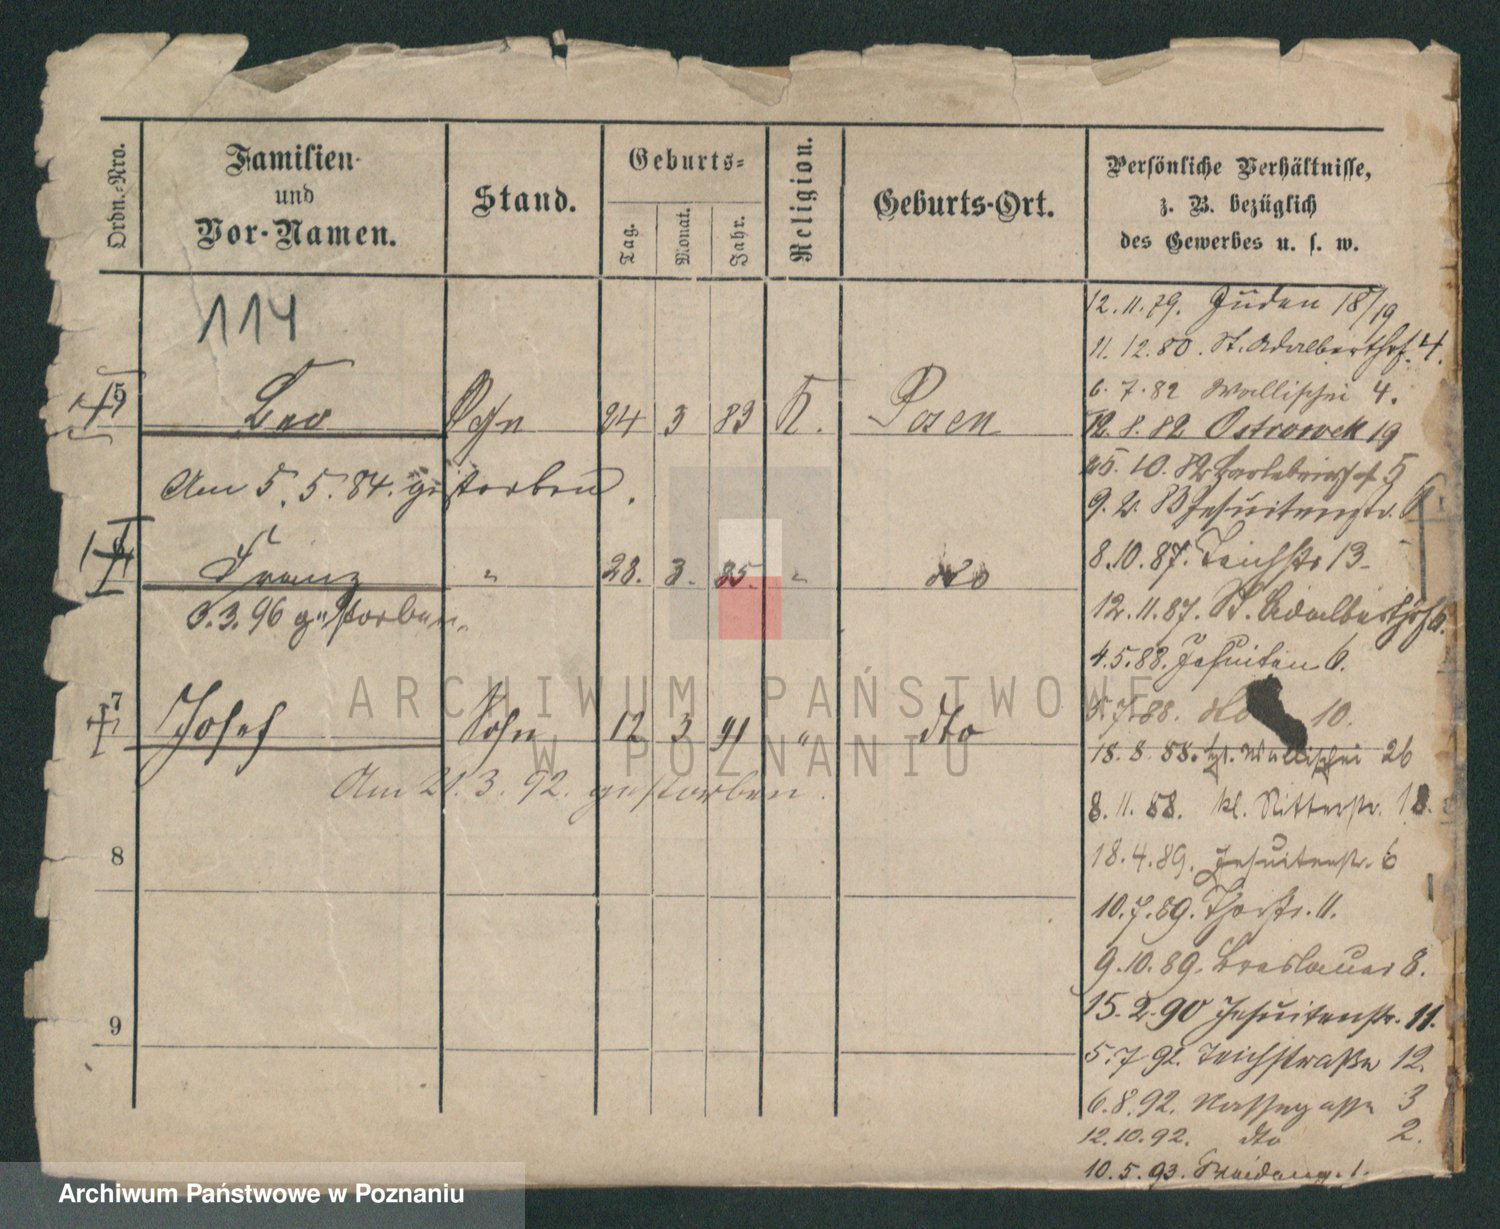 Ordn.-Nro.
Familien-
und
Vor-Namen.
Stand.
Geburts-
Tag.
Monat.
Jahr.
Religion.
Geburts-Ort.
Persönliche Verhältnisse,
z. B. bezüglich
des Gewerbes u. s. w.
114
12.11.79. Juden 18/19
11.12.80. St. Adalberthof. 4.
6.7.82 Wallischei 4.
5 Leo 24 3 83 K. Posen
12.8.82 Ostrowek 19
Am 5.5.84. gestorben.
25.10.82 5
9.2.83 Jesuitenstr.
8.10.87. Teichstr 13.
Franz " 28. 3. 85. " dto
3.3.96 gestorben.
12.11.87. St. Adalberthof 6.
4.5.88. Jesuiten 6.
7 Josef Sohn 12 3 91 " dto
7.88. dto 10.
18.8.88. Wallischei 26
Am 21.3.92. gestorben.
8.11.88. kl. Ritterstr. 18.
8
18.4.89. Jesuitenstr. 6
10.7.89. Thorstr. 11.
9.10.89. Breslauer 8.
9
15.2.90 Jesuitenstr. 11.
5.7.92. Teichstraße 12.
6.8.92. Nassegasse 3
12.10.92. dto 2.
10.5.93. 1.
ARCHIWUM PAŃSTWOWE
W POZNANIU
Archiwum Państwowe w Poznaniu